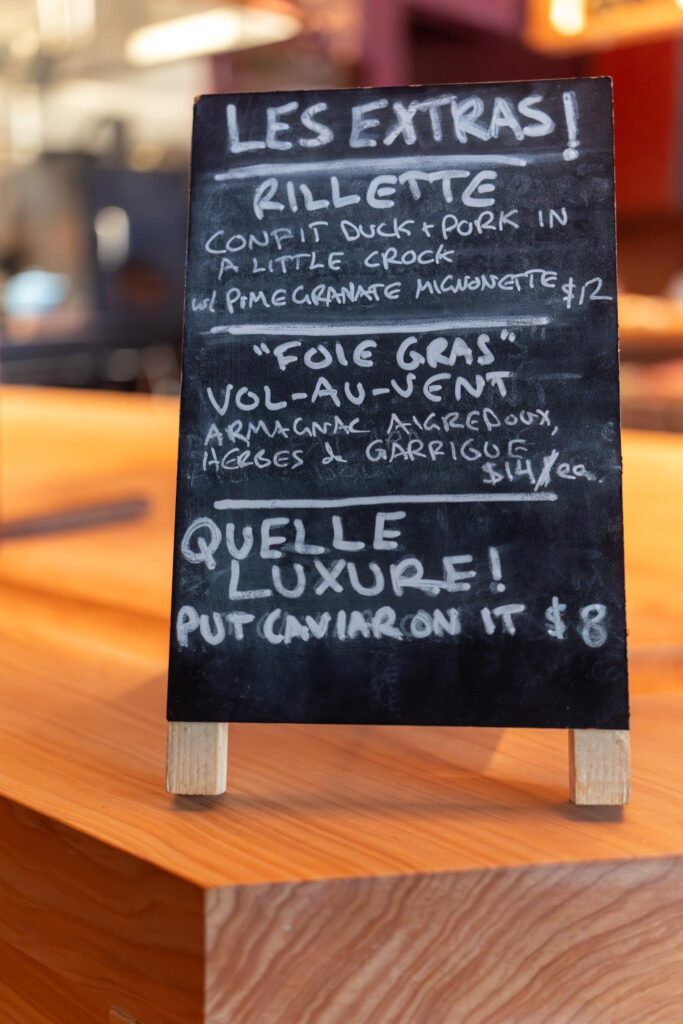 LES EXTRAS!
RILLETTE
CONFIT DUCK + PORK IN
A LITTLE CROCK
w/ POMEGRANATE MIGNONETTE $12
"FOIE GRAS"
VOL-AU-VENT
ARMAGNAC AIGREDOUX,
HERBES & GARRIGUE
$14/ea.
QUELLE
LUXURE!
PUT CAVIAR ON IT $8